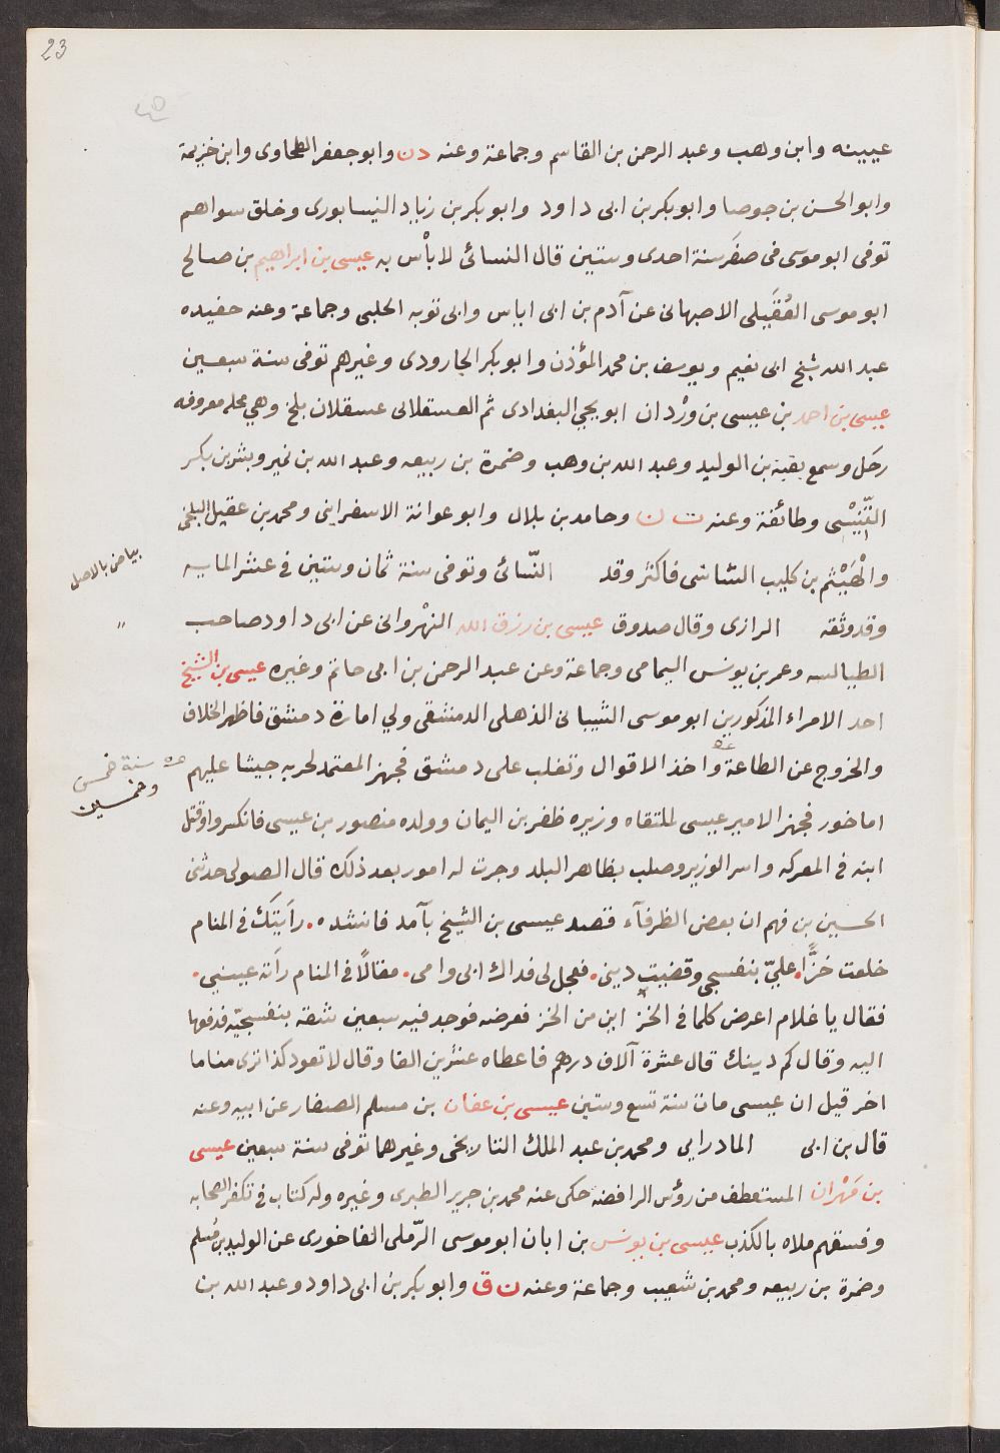 23
عيينه وابن وهب وعبد الرحمن بن القاسم وجماعة وعنه دن وابو جعفر الطحاوى وابن خزيمة
وابو الحسن بن جوصا وابو بكر بن ابى داود وابو بكر بن زياد النيسابورى وخلق سواهم
توفى ابو موسى فى صفر سنة احدى وستين قال النسائى لا بأس به عيسى بن ابراهيم بن صالح
ابو موسى العُقَيلى الاصبهانى عن آدم بن ابى اياس وابى توبه الحلبى وجماعة وعنه حفيده
عبد الله شيخ ابى نعيم ويوسف بن محمد المؤذن وابو بكر الجارودى وغيرهم توفى سنة سبعين
عيسى بن احمد بن عيسى بن وَرْدان ابو يحيى البغدادى ثم العسقلانى عسقلان بلخ وهي محله معروفه
رحل وسمع بقية بن الوليد وعبد الله بن وهب وضمرة بن ربيعه وعبد الله بن نمير وبشر بن بكر
التِّنِّيسْى وطائفة وعنه ت ن وحامد بن بلال وابو عوانة الاسفراينى ومحمد بن عقيل البلخى
والْهَيْثم بن كليب الشاشى فاكثر وقد النّسائى وتوفى سنة ثمان وستين فى عشر المايه
بياض بالاصل
وقد وثقه الرازى وقال صدوق عيسى بن رزق الله النهْروانى عن ابى داود صاحب
"
الطيالسه وعمر بن يونس اليمامى وجماعة وعن عبد الرحمن بن ابى حاتم وغيره عيسى بن الشيخ
احد الامراء المذكورين ابو موسى الشيبانى الذهلى الدمشقى ولي امارة دمشق فاظهر الخلاف
والخروج عن الطاعة واخذ الاقوال وتغلب على دمشق فجهز المعتمد لحربه جيشا عليهم
سنة خمس
وخمسين
اماخور فجهز الامير عيسى لملتقاه وزيره ظفر بن اليمان وولده منصور بن عيسى فانكسروا وقتل
ابنه فى المعركه واسر الوزير وصلب بظاهر البلد وجرت له امور بعد ذلك قال الصولى حدثنى
الحسين بن فهم ان بعض الظرفآء قصد عيسى بن الشيخ بآمد فانشده . رأيتك فى المنام
خلعت خزًّا . عليّ بنفسجى وقضيت دينى . فعجل لى فداك ابى وامى . مقالاً فى المنام رأته عينى .
فقال يا غلام اعرض كلما فى الخز اين من الخز فعرضه فوجد فيه سبعين شقه بنفسجيّه فدفعها
اليه وقال كم دينك قال عشرة آلاف درهم فاعطاه عشرين الفا وقال لا تعود كذا ترى مناما
اخر قيل ان عيسى مات سنة تسع وستين عيسى بن عفان بن مسلم الصفار عن ابيه وعنه
قال بن ابى المادرايى ومحمد بن عبد الملك التاريخى وغيرهما توفى سنة سبعين عيسى
بن مَهْران المستعطف من رؤس الرافضه حكى عنه محمد بن جرير الطبرى وغيره وله كتاب فى تكفر الصحابه
وفسقهم ملاه بالكذب عيسى بن يونس بن ابان ابو موسى الرّملى الفاخورى عن الوليد بن مُسلم
وضمرة بن ربيعه ومحمد بن شعيب وجماعة وعنه ن ق وابو بكر بن ابى داود وعبد الله بن